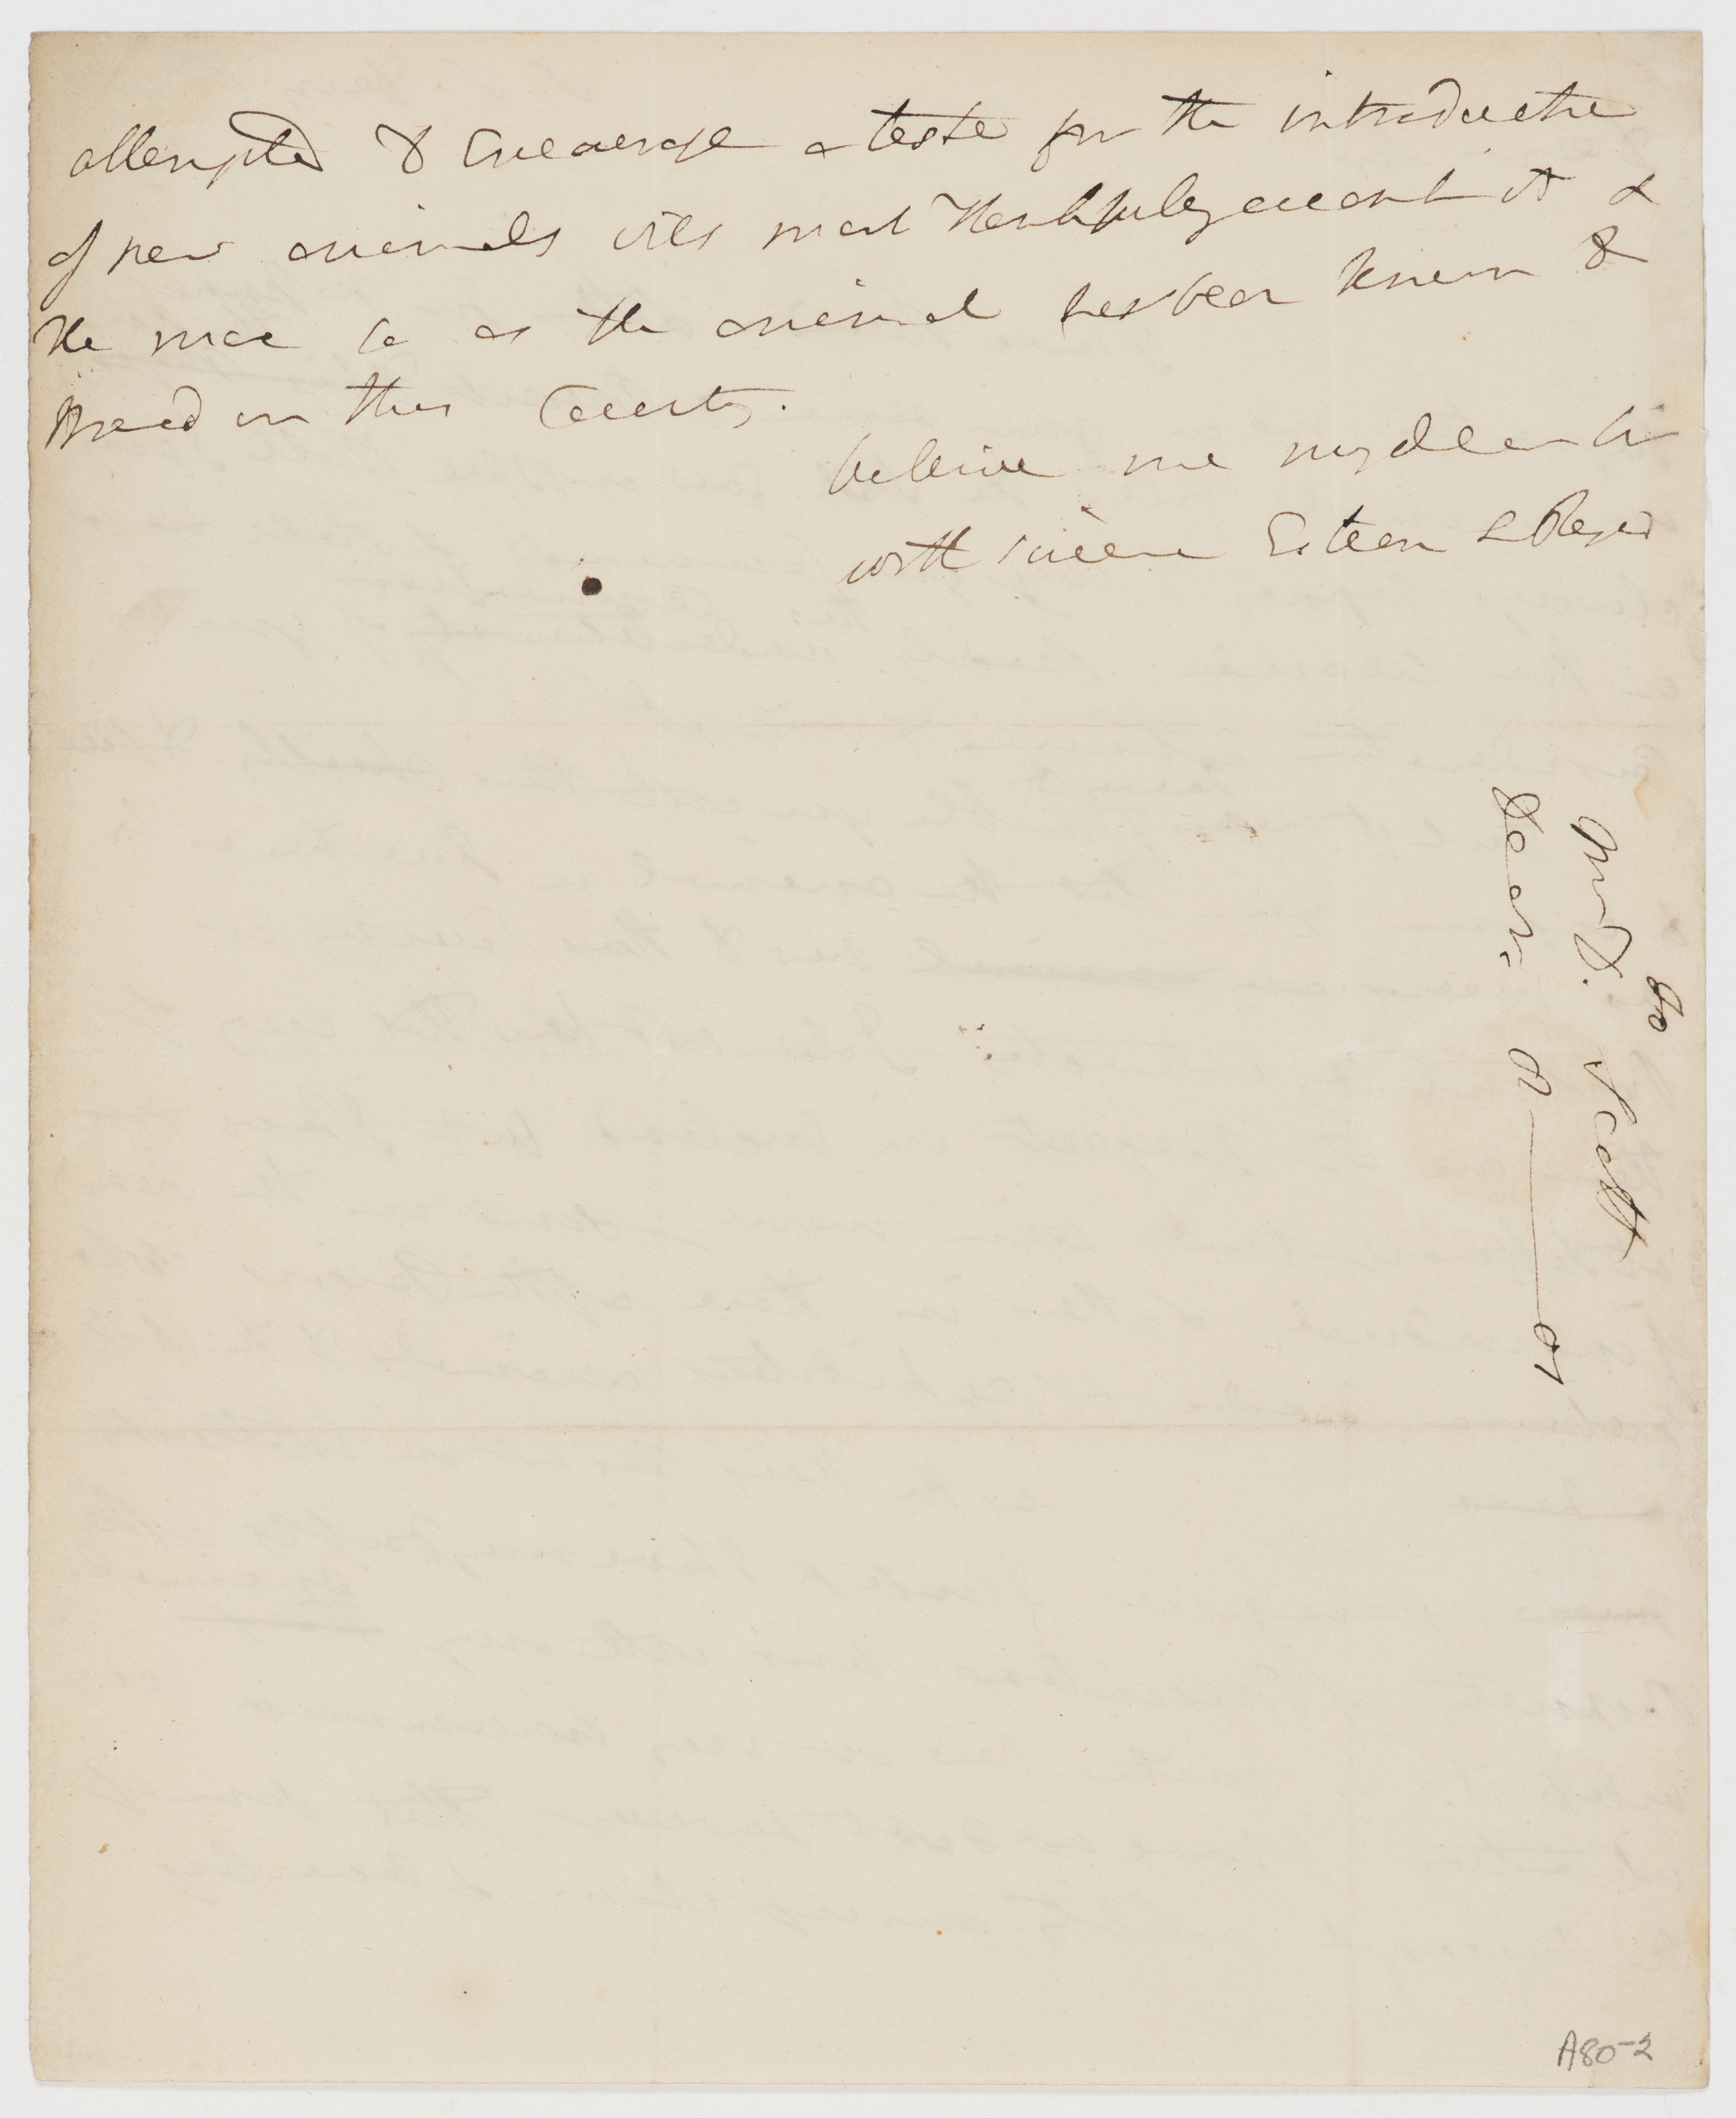 attempted to Encourage a taste for the introduction
of new animals will most thankfully accent it &
the more so as the animal has been known to
Breed in this Country.
believe me my dear Sir
with sincere Esteem & Regard
Do
Mr D. Scott
Dear
A80-2